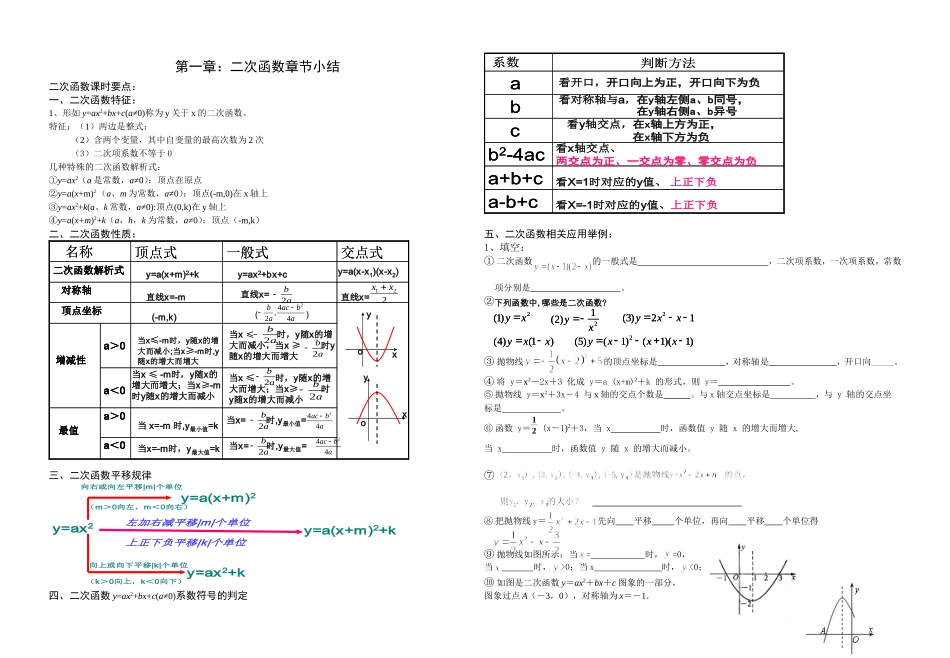 第一章：二次函数章节小结
二次函数课时要点：
一、二次函数特征：
1、形如 y=ax²+bx+c(a≠0)称为 y 关于 x 的二次函数。
特征：（1）两边是整式；
（2）含两个变量，其中自变量的最高次数为 2 次
（3）二次项系数不等于 0
几种特殊的二次函数解析式：
①y=ax²（a 是常数，a≠0）；顶点在原点
②y=a(x+m)²（a、m 为常数，a≠0）；顶点(-m,0)在 x 轴上
③y=ax²+k(a、k 常数，a≠0):顶点(0,k)在 y 轴上
④y=a(x+m)²+k（a，h，k 为常数，a≠0）；顶点（-m,k）
二、二次函数性质：
名称 顶点式 一般式 交点式
二次函数解析式 y=a(x+m)²+k y=ax²+bx+c y=a(x-x₁)(x-x₂)
对称轴 直线x=-m 直线x= -b/2a 直线x= (x₁+x₂)/2
顶点坐标 (-m,k) (-b/2a, (4ac-b²)/4a)
增减性
a＞0 当x≤-m时，y随x的增大而减小;当x≥-m时,y随x的增大而增大 当x ≤-b/2a时，y随x的增大而减小，当x ≥ -b/2a时y随x的增大而增大
a＜0 当x ≤ -m时，y随x的增大而增大；当x≥-m时y随x的增大而减小 当x ≤ -b/2a时，y随x的增大而增大；当x≥-b/2a时y随x的增大而减小
最值
a＞0 当 x=-m 时,y最小值=k 当x= -b/2a时,y最小值=(4ac-b²)/4a
a＜0 当x=-m时，y最大值=k 当x=-b/2a时,y最大值= (4ac-b²)/4a
y
o
x
y
o
x
三、二次函数平移规律
向右或向左平移|m|个单位
y=a(x+m)²
（m＞0向左，m＜0向右）
左加右减平移|m|个单位
y=ax²
y=a(x+m)²+k
上正下负平移|k|个单位
向上或向下平移|k|个单位
y=ax²+k
（k＞0向上，k＜0向下）
四、二次函数 y=ax²+bx+c(a≠0)系数符号的判定
系数 判断方法
a 看开口，开口向上为正，开口向下为负
b 看对称轴与a，在y轴左侧a、b同号，
在y轴右侧a、b异号
c 看y轴交点，在x轴上方为正，
在x轴下方为负
b²-4ac 看x轴交点、
两交点为正、一交点为零、零交点为负
a+b+c 看X=1时对应的y值、上正下负
a-b+c 看X=-1时对应的y值、上正下负
五、二次函数相关应用举例：
1、填空：
① 二次函数 y=(x-1)(2-x) 的一般式是____，二次项系数，一次项系数，常数
项分别是____。
②下列函数中,哪些是二次函数?
(1)y=x² (2)y=1/x² (3)y=2x²-x-1
(4)y=x(1-x) (5)y=(x-1)²-(x+1)(x-1)
③ 抛物线 y=-1/2(x-2)²+5 的顶点坐标是____,对称轴是____，开口向____.
④ 将 y＝x²－2x＋3 化成 y＝a (x+m)²＋k 的形式，则 y＝____。
⑤ 抛物线 y＝x²＋3x－4 与 x 轴的交点个数是____。与 x 轴交点坐标是____，与 y 轴的交点坐
标是____。
⑥ 函数 y＝1/2 (x－1)²＋3，当 x____时，函数值 y 随 x 的增大而增大.
当 x____时，函数值 y 随 x 的增大而减小。
⑦ (2, y₁), (3, y₂), (-4, y₃), (-5, y₄)是抛物线y=x²-2x+n 的点，
⑧ 把抛物线 y＝ 先向____平移____个单位，再向____平移____个单位得
y=1/2x²-x-3/2
⑨ 抛物线如图所示：当 x =____时，y =0,
当 x____时，y >0；当 x____时，y <0；
⑩ 如图是二次函数 y＝ax²＋bx＋c 图象的一部分，
图象过点 A（－3，0），对称轴为 x＝－1．
y
-1 O 1 2 3 x
-1
-2
y
A
O
x